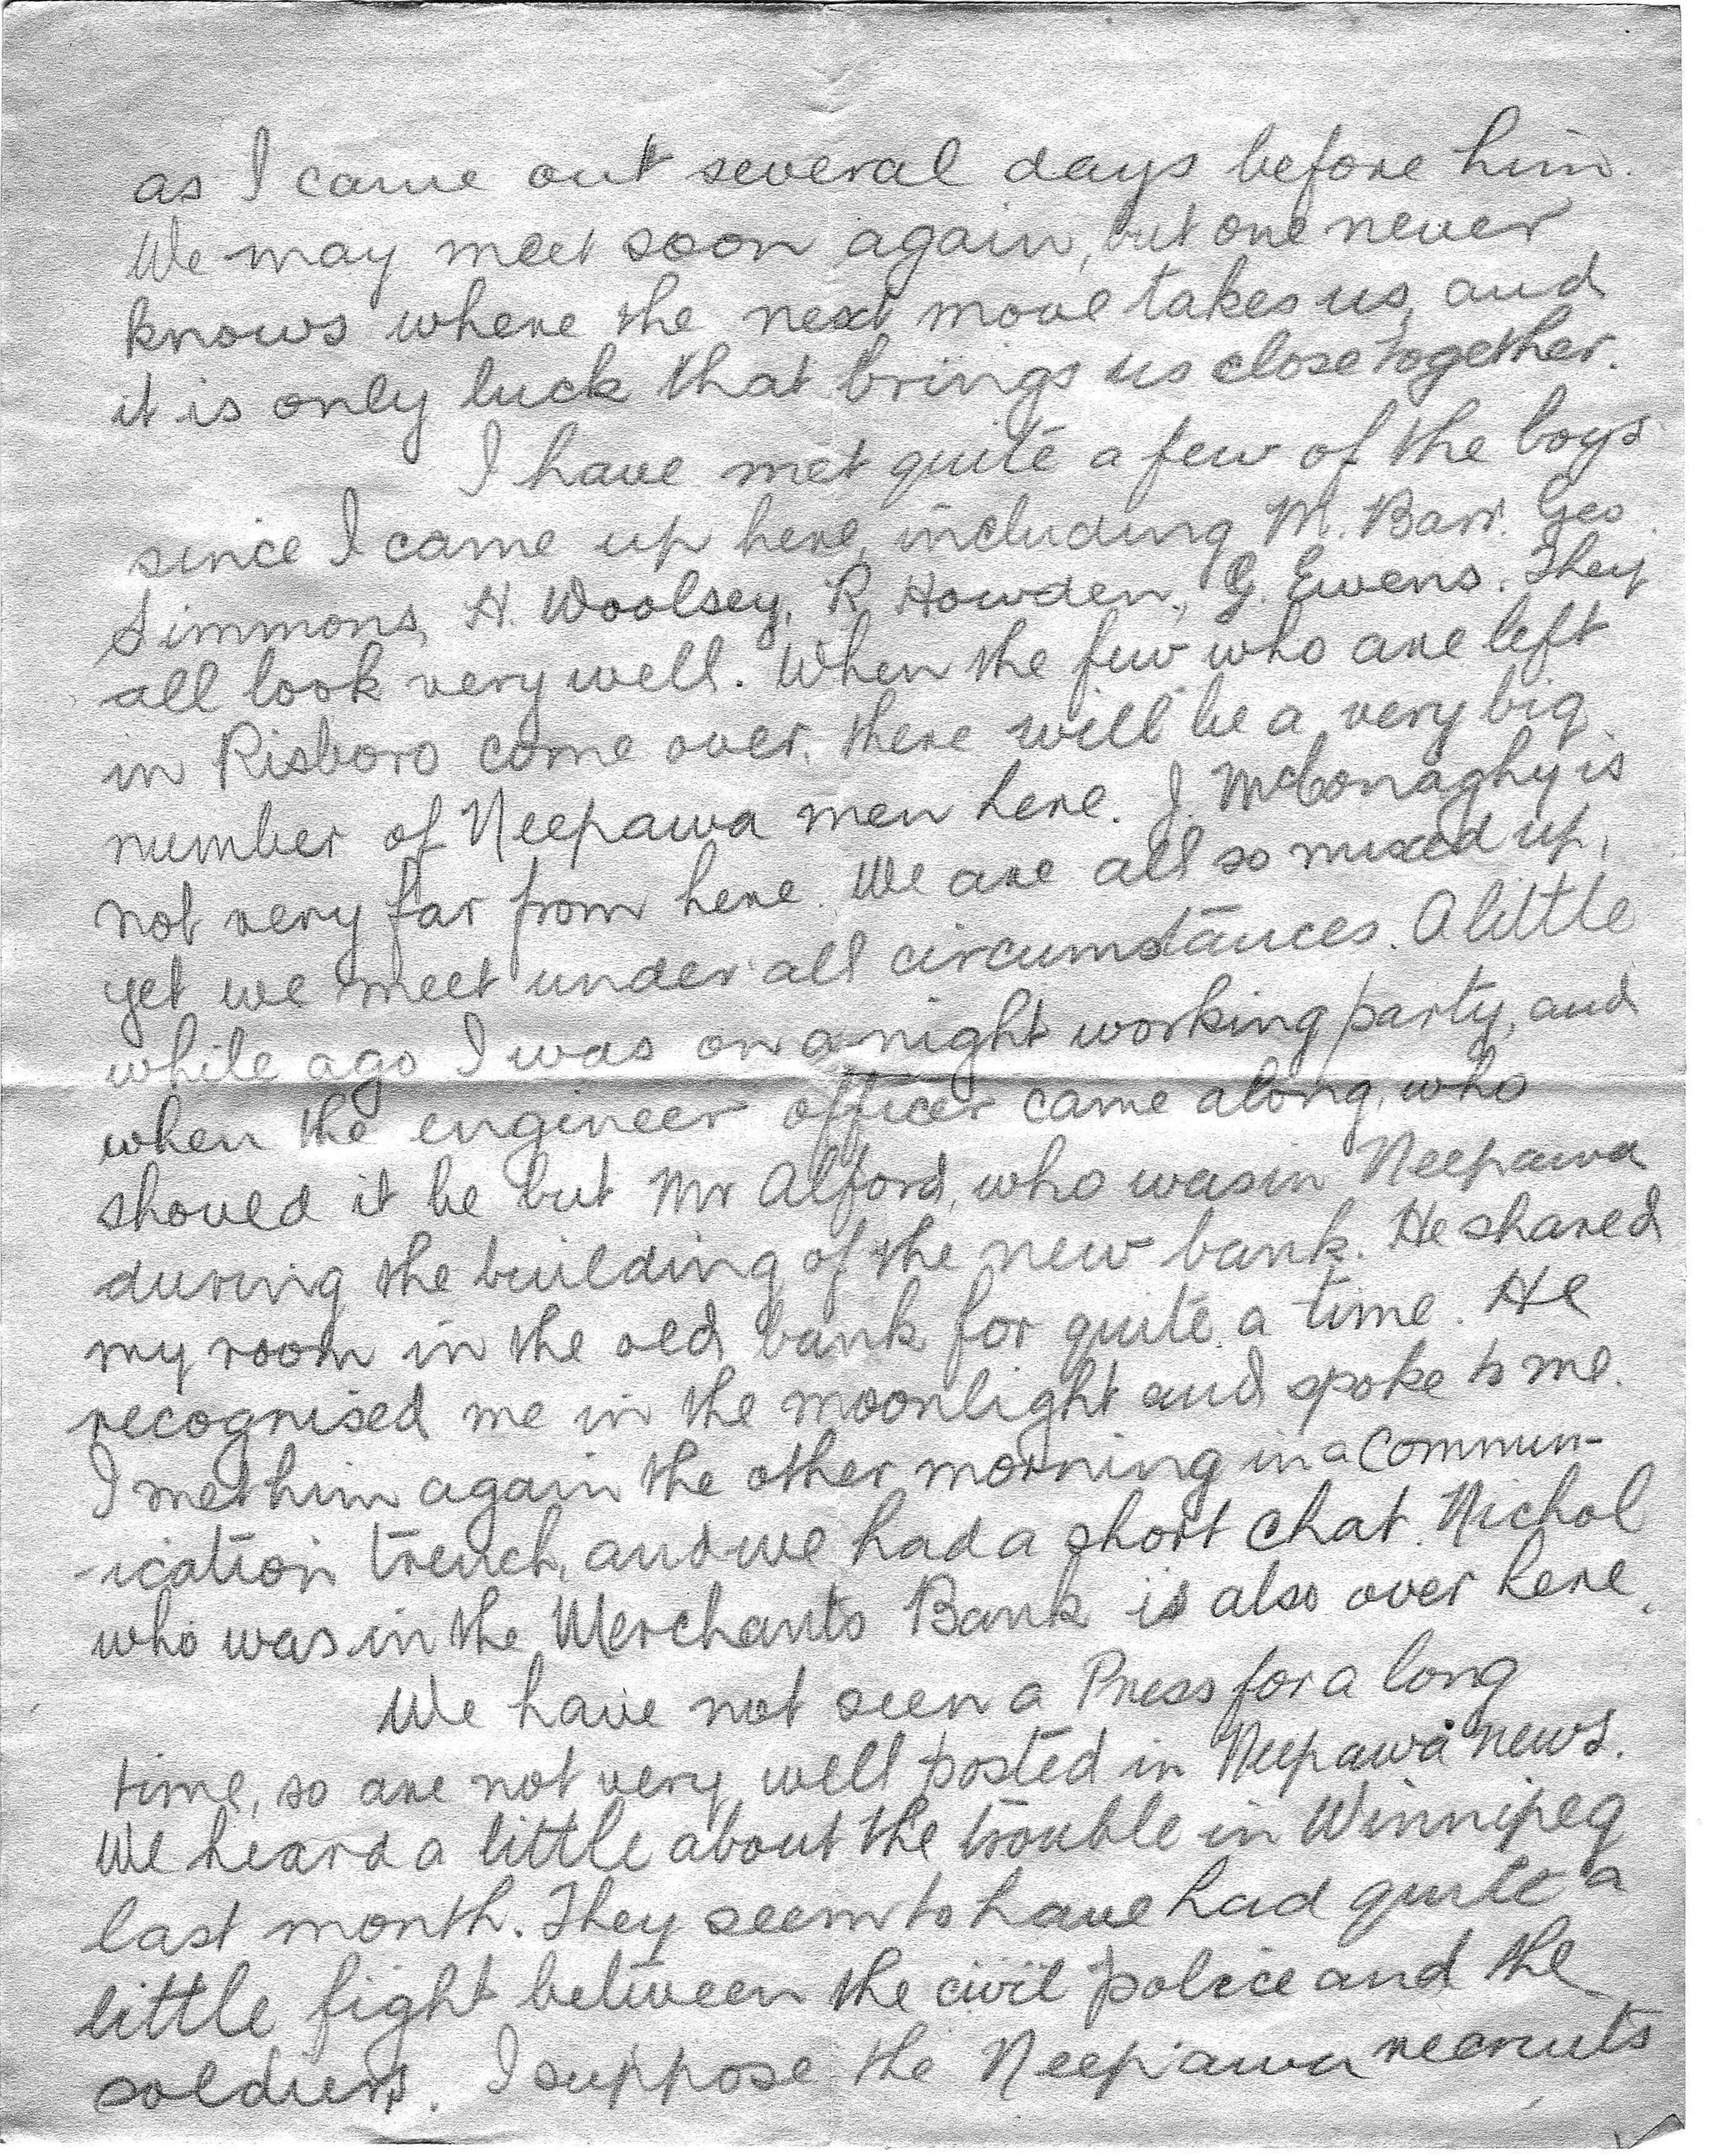 as I came out several days before him.
We may meet soon again, but one never
knows where the next move takes us, and
it is only luck that brings us close together.
I have met quite a few of the boys
since I came up here, including M. Barr. Geo.
Simmons, H. Woolsey, R. Howden, G. Ewens. They
all look very well. When the few who are left
in Risboro come over, there will be a very big
number of Neepawa men here. J. McConaghy is
not very far from here. We are all so mixed up,
yet we meet under all circumstances. A little
while ago I was on a night working party, and
when the engineer officer came along, who
should it be but Mr Alford, who was in Neepawa
during the building of the new bank. He shared
my room in the old bank for quite a time. He
recognised me in the moonlight and spoke to me.
I met him again the other morning in a commun-
-ication trench, and we had a short chat. Nichol
who was in the Merchants Bank is also over here.
We have not seen a Press for a long
time, so are not very well posted in Neepawa news.
We heard a little about the trouble in Winnipeg
last month. They seem to have had quite a
little fight between the civil police and the
soldiers. I suppose the Neepawa recruits